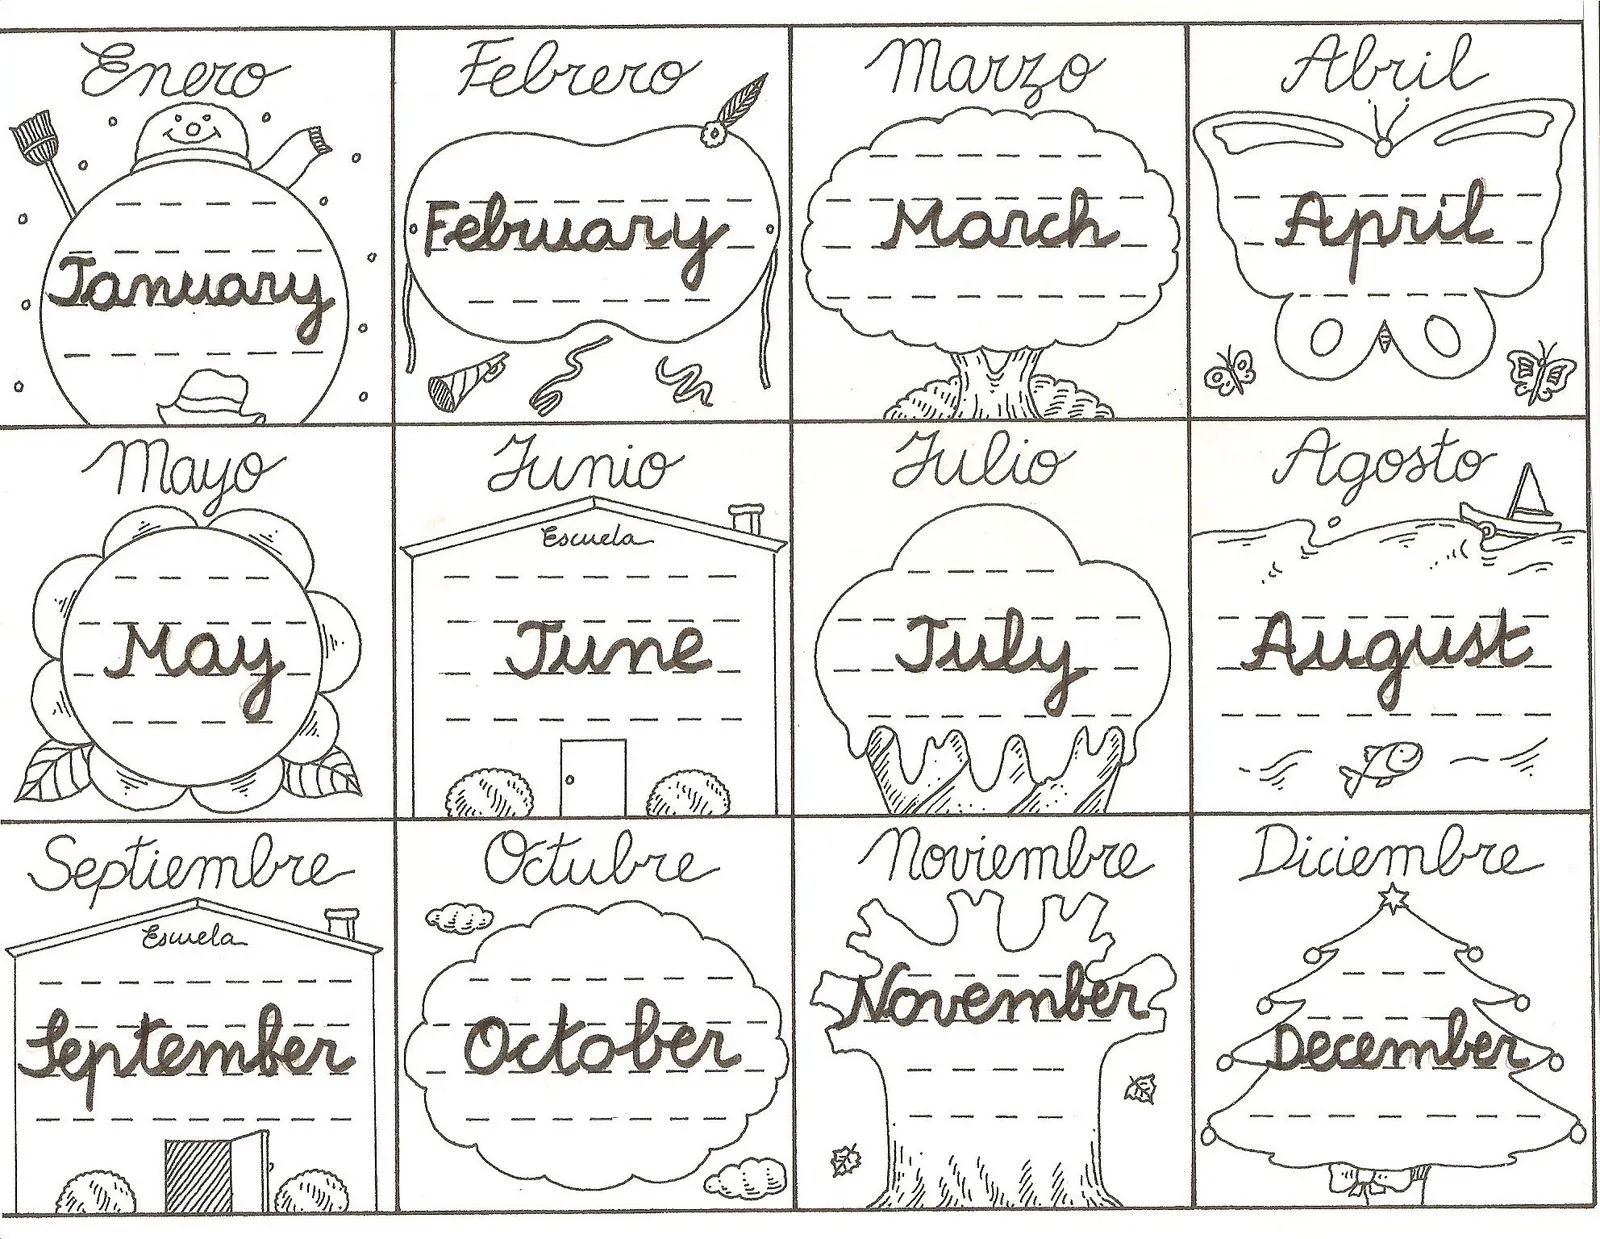 Enero
January
Febrero
February
Marzo
March
Abril
April
Mayo
May
Junio
Escuela
June
Julio
July
Agosto
August
Septiembre
Escuela
September
Octubre
October
Noviembre
November
Diciembre
December